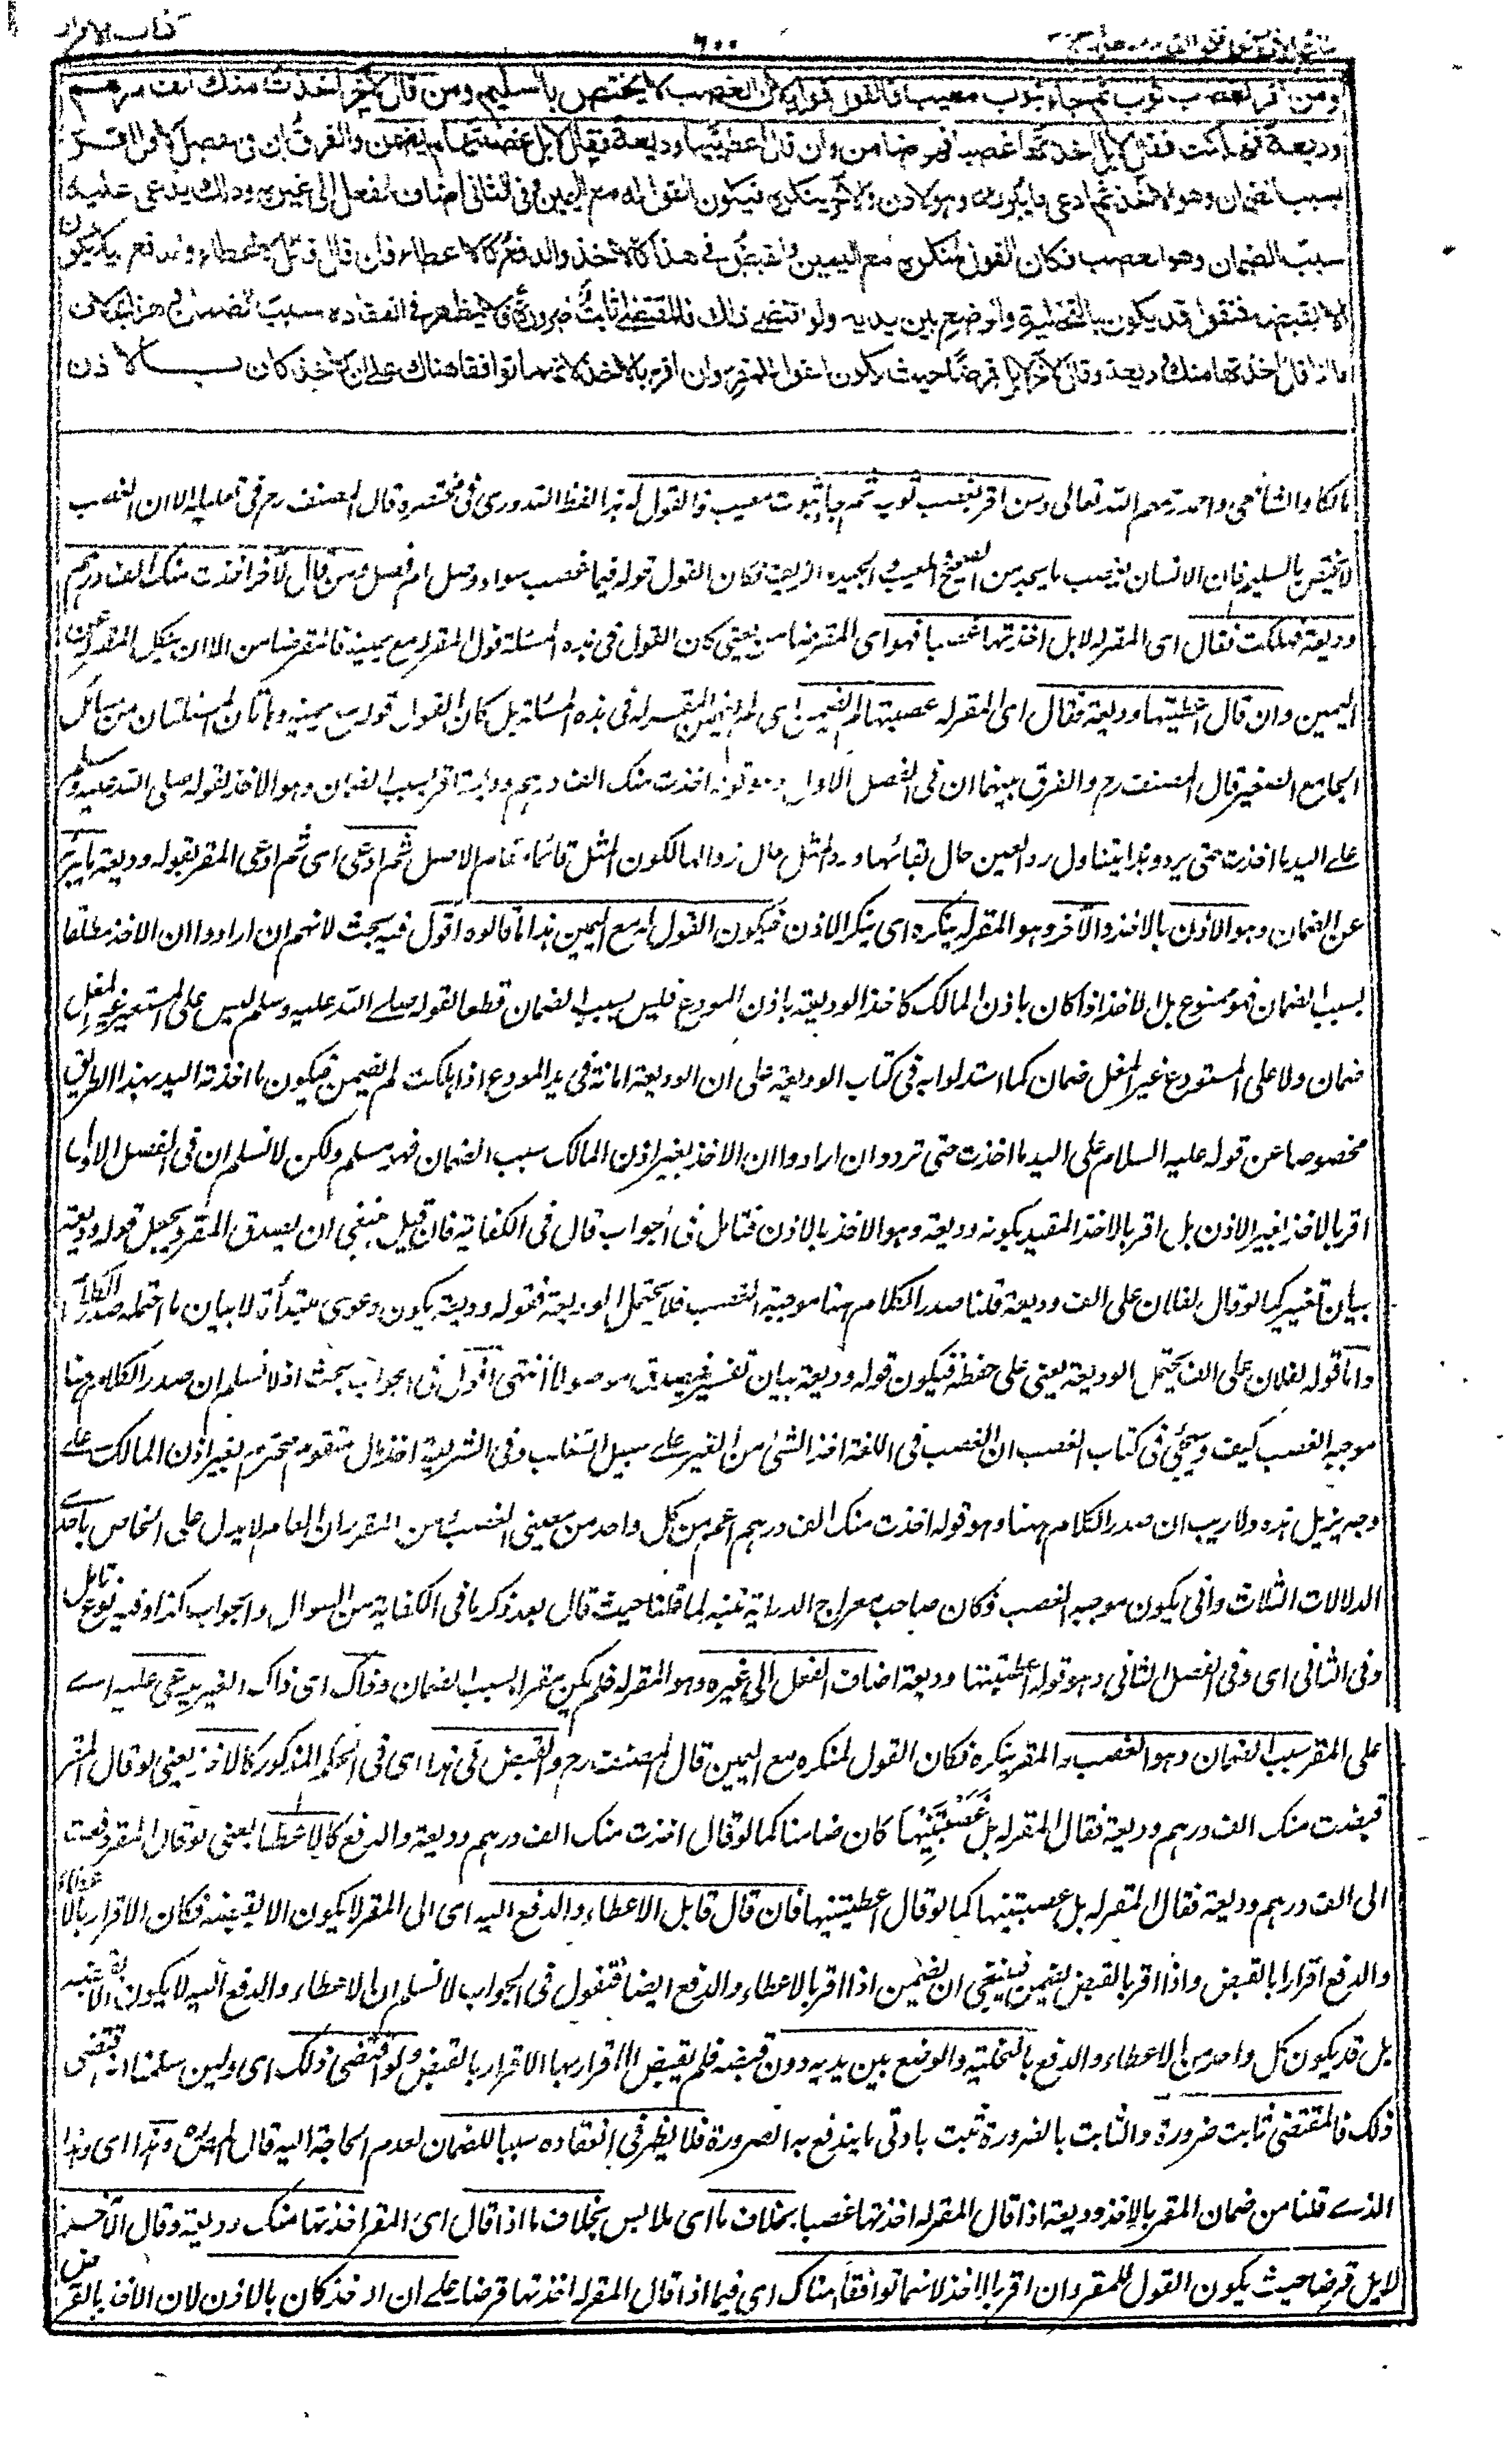 كتاب الاقرار
٦٠٠
ومن اقر بغصب ثوب ثم جاء بثوب معيب فالقول قوله لان الغصب لا يختص بالسليم ومن قال لاخر اخذت منك الف درهم
وديعة فهلكت فقال لا بل اخذتها غصبا فهو ضامن وان قال اعطيتنيها وديعة فقال لا بل غصبتنيها لم يضمن والفرق ان في الفصل الاول اقر
بسبب الضمان وهو الاخذ ثم ادعى ما يبرئه وهو الاذن والاخر ينكره فيكون القول له مع اليمين وفي الثاني اضاف الفعل الى غيره وذلك يدعى عليه
سبب الضمان وهو الغصب فكان القول لمنكره مع اليمين والقبض في هذا كالاخذ والدفع كالاعطاء فان قال قائل الاعطاء والدفع اليه لا يكون
الا بقبضه فنقول قد يكون بالتخلية والوضع بين يديه ولو اقتضى ذلك فالمقتضى ثابت ضرورة فلا يظهر في انعقاده سبب الضمان وهذا بخلاف
ما اذا قال اخذتها منك وديعة وقال الاخر لا بل قرضا حيث يكون القول للمقر وان اقر بالاخذ لانهما توافقا هناك على ان الاخذ كان بالاذن
مالك والشافعي واحمد رحمهم الله تعالى ومن اقر بغصب ثوب ثم جاء بثوب معيب فالقول له هذا لفظ القدوري في مختصره وقال المصنف رح في تعليله الا ان الغصب
لا يختص بالسليم فان الانسان يغصب ما يجد من الصحيح والمعيب والجيد والردي فكان القول قوله فيما غصب سواء وصل ام فصل ومن قال لاخر اخذت منك الف درهم
وديعة فهلكت فقال اى المقر له لا بل اخذتها غصبا فهو اى المقر ضامن يعني كان القول في هذه المسئلة قول المقر له مع يمينه فالمقر ضامن الا ان ينكل المقر له عن
اليمين وان قال اعطيتنيها وديعة فقال اى المقر له غصبتنيها لم يضمن اى لم يضمن المقر له في هذه المسئلة بل كان القول قوله مع يمينه وهاتان المسئلتان من مسائل
الجامع الصغير قال المصنف رح والفرق بينهما ان في الفصل الاول وهو قوله اخذت منك الف درهم وديعة اقر بسبب الضمان وهو الاخذ لقوله صلى الله عليه وسلم
على اليد ما اخذت حتى ترد وهذا يتناول رد العين حال بقائها ورد المثل حال زوالها لكون المثل قائما مقام الاصل ثم ادعى اى ثم ادعى المقر بقوله وديعة ما يبرئه
عن الضمان وهو الاذن بالاخذ والآخر وهو المقر له ينكره اى ينكر الاذن فيكون القول له مع اليمين هذا ما قالوه اقول فيه بحث لانهم ان ارادوا ان الاخذ مطلقا
سبب الضمان فهو ممنوع بل الاخذ اذا كان باذن المالك كاخذ الوديعة باذن المودع فليس بسبب الضمان قطعا لقوله صلى الله عليه وسلم ليس على المستعير غير المغل
ضمان ولا على المستودع غير المغل ضمان كما استدلوا به في كتاب الوديعة على ان الوديعة امانة في يد المودع اذا هلكت لم يضمن فيكون ما اخذته اليد بهذا الطريق
مخصوصا عن قوله عليه السلام على اليد ما اخذت حتى ترد وان ارادوا ان الاخذ بغير اذن المالك سبب الضمان فهو مسلم ولكن لا نسلم ان في الفصل الاول
اقر بالاخذ بغير الاذن بل اقر بالاخذ المقيد بكونه وديعة وهو الاخذ بالاذن فتامل في الجواب قال في الكفاية فان قيل ينبغي ان يصدق المقر ويجعل قوله وديعة
بيان تغيير كما لو قال لفلان على الف وديعة قلنا صدر الكلام ههنا موجبه الغصب فلا يحتمل الوديعة فقوله وديعة يكون دعوى مبتدأة لا بيان ما احتمله صدر الكلام
واما قوله لفلان على الف يحتمل الوديعة يعني على حفظه فيكون قوله وديعة بيان تفسير فيصدق موصولا انتهى اقول في الجواب بحث اذ لا نسلم ان صدر الكلام ههنا
موجبه الغصب كيف وسيجئ في كتاب الغصب ان الغصب في اللغة اخذ الشئ من الغير على سبيل التغلب وفي الشريعة اخذ مال متقوم محترم بغير اذن المالك على
وجه يزيل يده ولا ريب ان صدر الكلام ههنا وهو قوله اخذت منك الف درهم اعم من كل واحد من معنى الغصب ومن المقرر ان العام لا يدل على الخاص باحد
الدلالات الثلاث وانى يكون موجبه الغصب وكان صاحب معراج الدراية تنبه لما قلنا حيث قال بعد ذكر ما في الكفاية من السوال والجواب كذا وفيه نوع تامل
وفي الثاني اى وفي الفصل الثاني وهو قوله اعطيتنيها وديعة اضاف الفعل الى غيره وهو المقر له فلم يكن مقرا بسبب الضمان وذاك اى ذاك الغير يدعى عليه اى
على المقر سبب الضمان وهو الغصب والمقر ينكره فكان القول لمنكره مع اليمين قال المصنف رح والقبض في هذا اى في الحكم المذكور كالاخذ يعني لو قال المقر
قبضت منك الف درهم وديعة فقال المقر له بل غصبتنيها كان ضامنا كما لو قال اخذت منك الف درهم وديعة والدفع كالاعطاء يعني لو قال المقر دفعت
الى الف درهم وديعة فقال المقر له بل غصبتنيها كما لو قال اعطيتنيها فان قال قائل الاعطاء والدفع اليه اى الى المقر لا يكون الا بقبضه فكان الاقرار بالاعطاء
والدفع اقرارا بالقبض واذا اقر بالقبض يضمن فينبغي ان يضمن اذا اقر بالاعطاء والدفع ايضا فنقول في الجواب لا نسلم ان الاعطاء والدفع اليه لا يكون الا بقبضه
بل قد يكون كل واحد من الاعطاء والدفع بالتخلية والوضع بين يديه دون قبضه فلم يقبض الاقرار بها الاقرار بالقبض ولو اقتضى ذلك اى ولئن سلمنا انه اقتضى
ذلك فالمقتضى ثابت ضرورة والثابت بالضرورة يثبت بادنى ما يندفع به الضرورة فلا يظهر في انعقاده سببا للضمان لعدم الحاجة اليه قال المص رح وهذا اى وهذا
الذى قلنا من ضمان المقر بالاخذ وديعة اذا قال المقر له اخذتها غصبا بخلاف ما اى ملابس بخلاف ما اذا قال اى المقر اخذتها منك وديعة وقال الآخر
لا بل قرضا حيث يكون القول للمقر وان اقر بالاخذ لانهما توافقا هناك اى فيما اذا قال المقر له اخذتها قرضا على ان الاخذ كان بالاذن لان الاخذ بالقرض